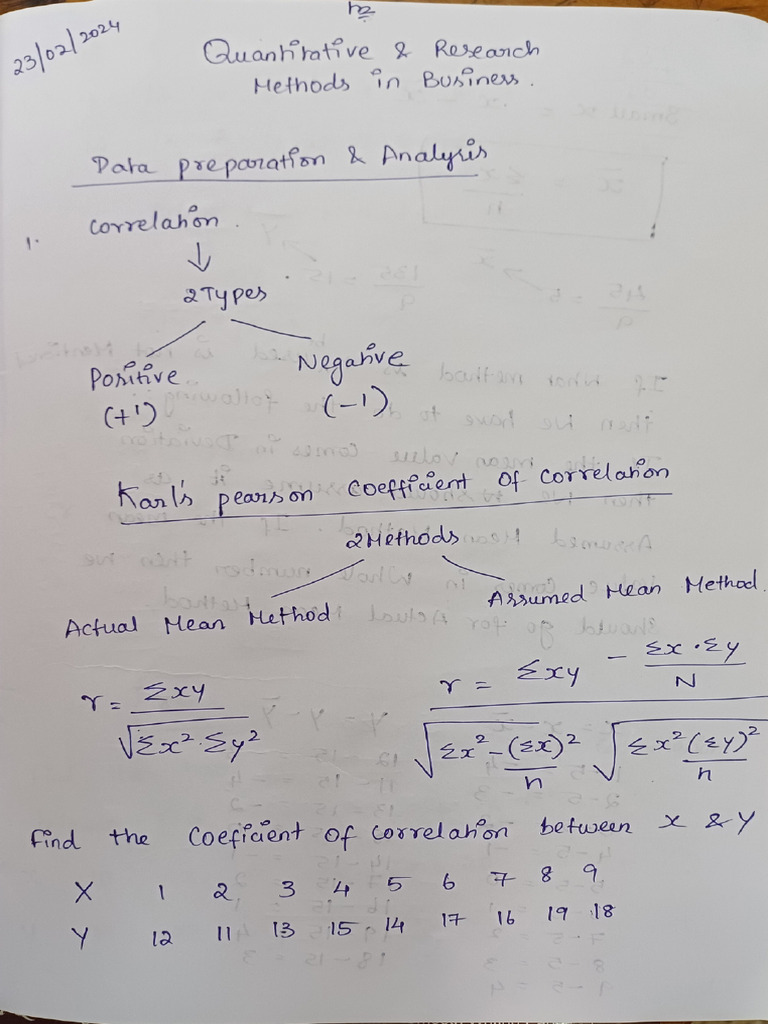 h2
23/02/2024
Quantitative & Research
Methods in Business.
Data preparation & Analysis
1. Correlation.
↓
2 Types
Positive Negative
(+1) (-1)
Karl's pearson Coefficient Of Correlation
2 Methods
Actual Mean Method Assumed Mean Method.
r = Σxy / √Σx²·Σy² r = Σxy - Σx·Σy/N / √Σx²-(Σx)²/n √Σx²(Σy)²/n
Find the Coeficient of Correlation between x & y
X 1 2 3 4 5 6 7 8 9
Y 12 11 13 15 14 17 16 19 18